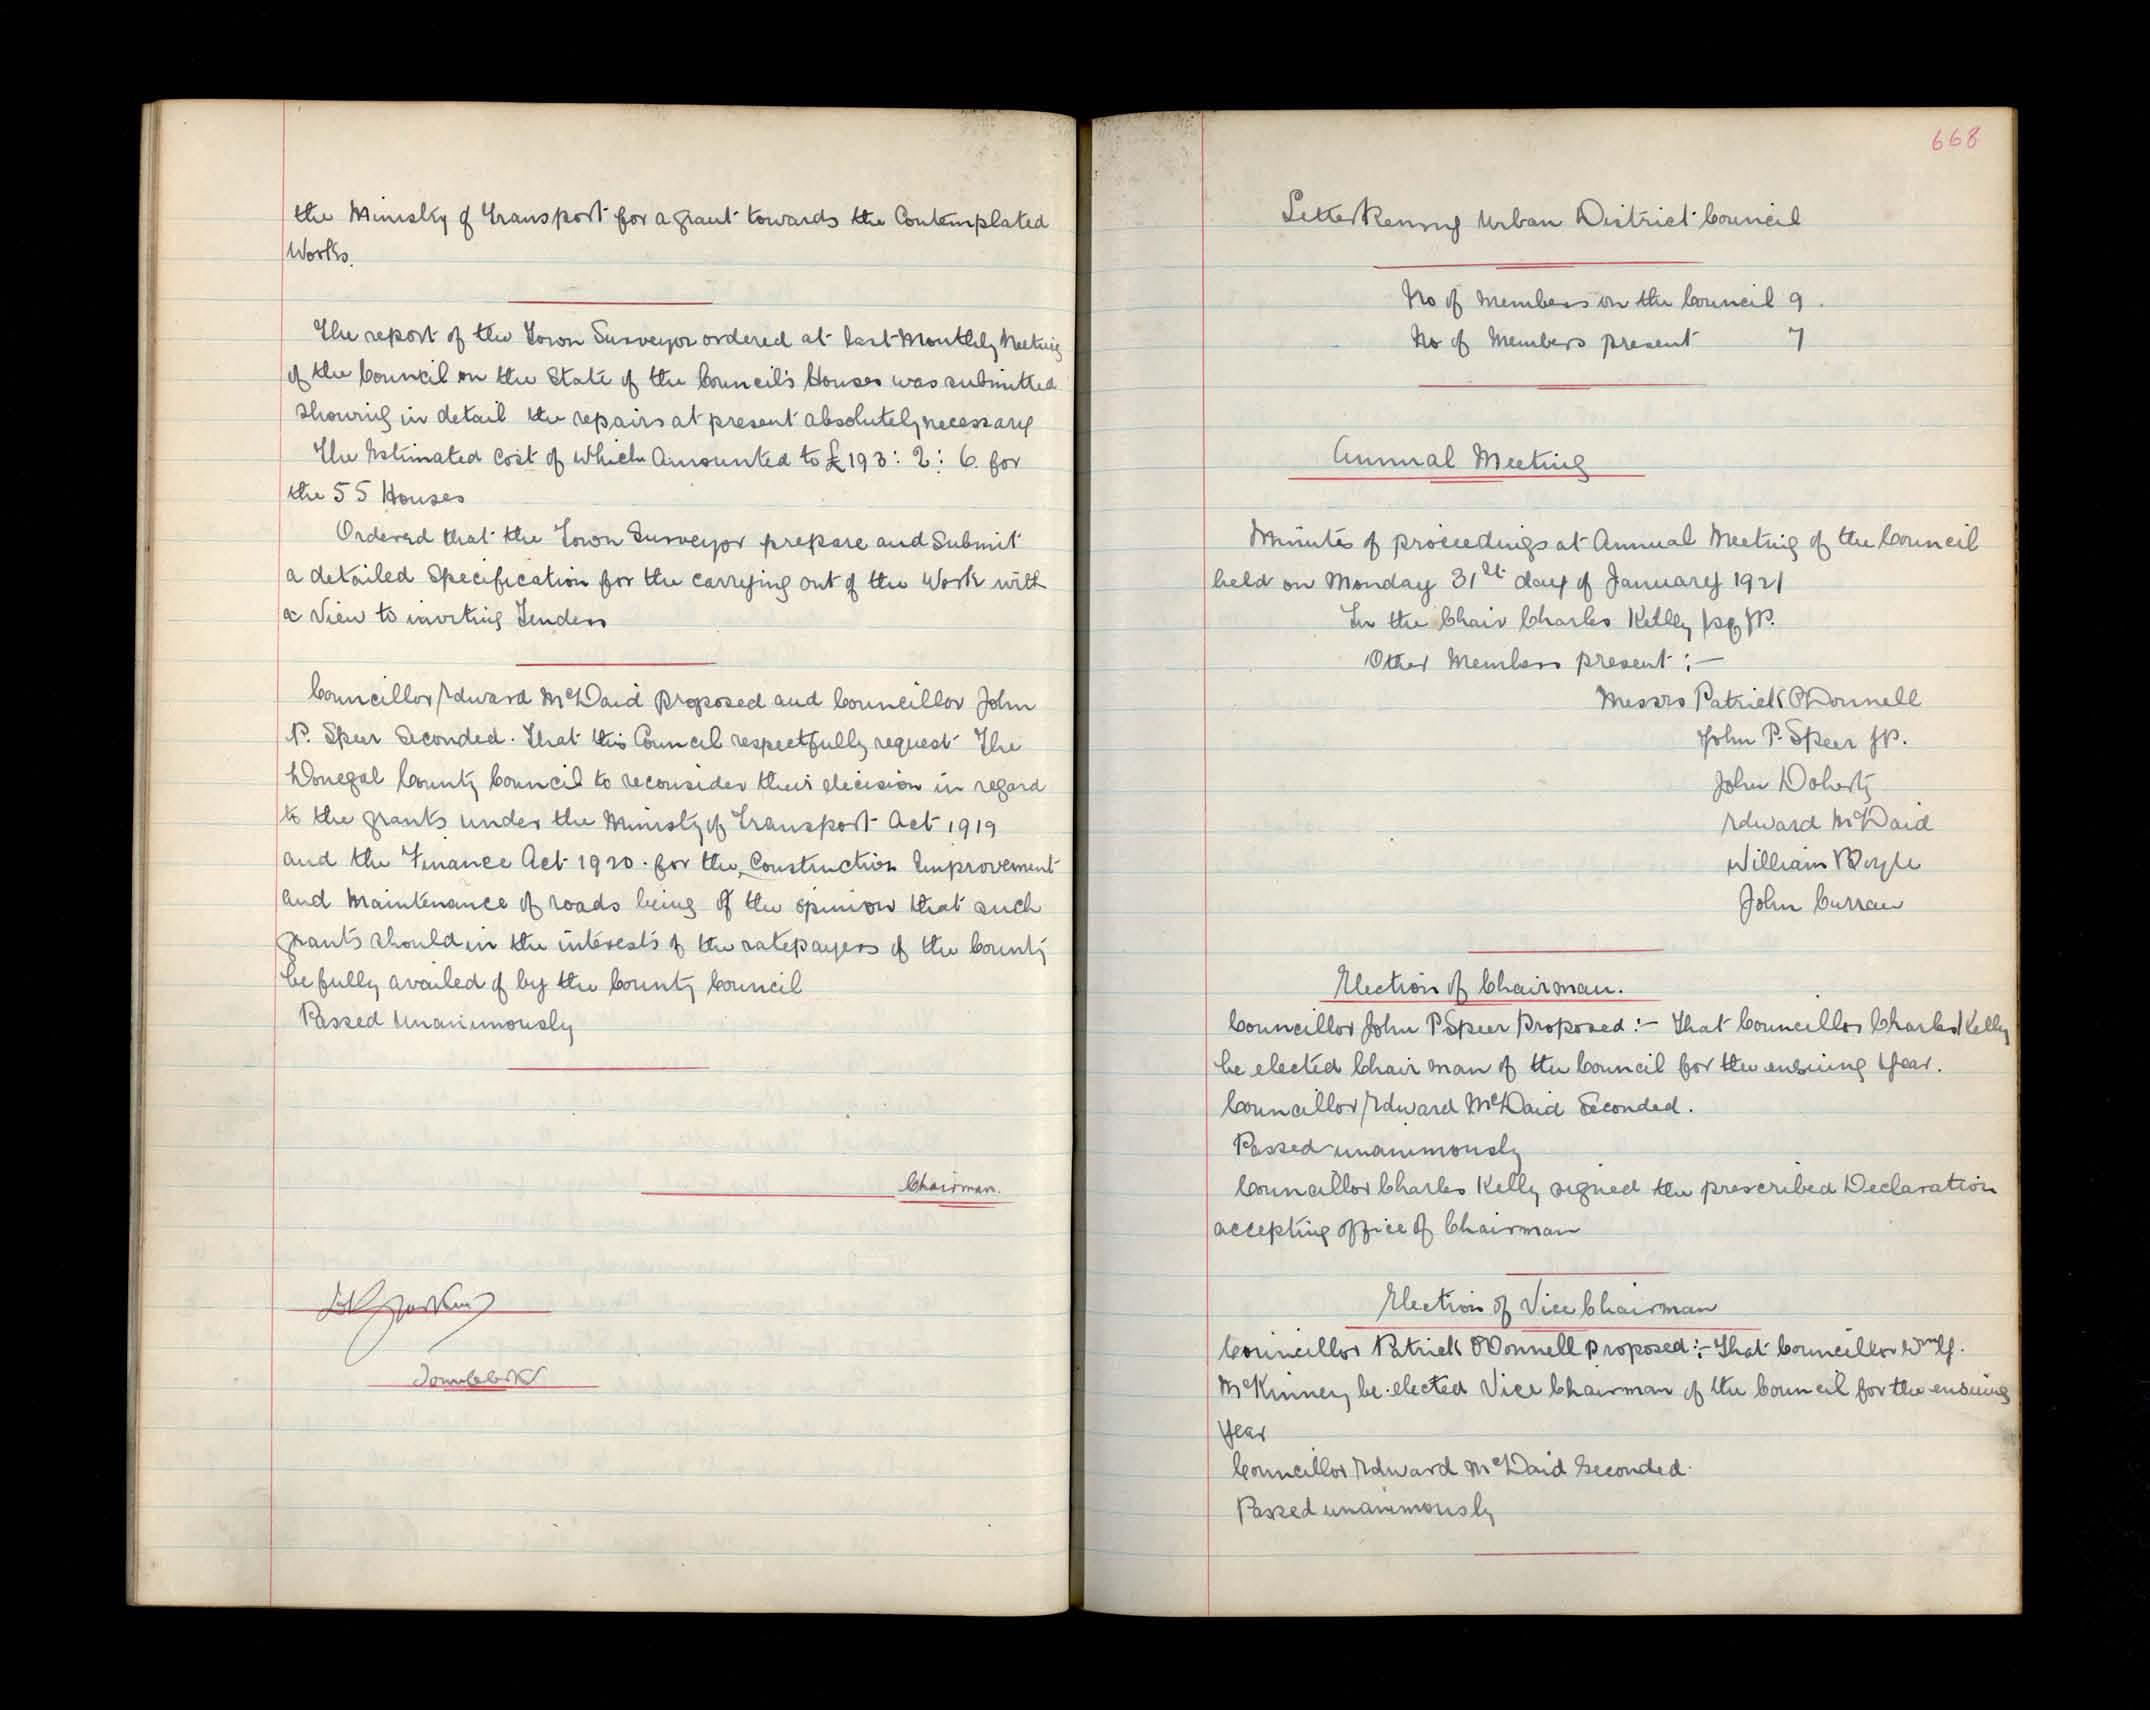 the Ministry of Transport for a grant towards the Contemplated
Works.
The report of the Town Surveyor ordered at last Monthly Meeting
of the Council on the State of the Council's Houses was submitted
showing in detail the repairs at present absolutely necessary
The Estimated Cost of which Amounted to £193: 2: 6. for
the 55 Houses
Ordered that the Town Surveyor prepare and Submit
a detailed Specification for the carrying out of the Work with
a View to inviting Tenders
Councillor Edward McDaid proposed and Councillor John
P. Speer Seconded. That this Council respectfully request The
Donegal County Council to reconsider their decision in regard
to the grants under the Ministry of Transport Act 1919
and the Finance Act 1920. for the Construction Improvement
and Maintenance of roads being of the opinion that such
grants should in the interests of the ratepayers of the County
be fully availed of by the County Council
Passed Unanimously
Chairman.
Town Clerk
668
Letterkenny Urban District Council
No of Members on the Council 9.
No of Members present 7
Annual Meeting
Minutes of proceedings at Annual Meeting of the Council
held on Monday 31st day of January 1921
In the Chair Charles Kelly Esq JP.
Other Members present :-
Messrs Patrick O'Donnell
John P. Speer JP.
John Doherty
Edward McDaid
William Boyle
John Curran
Election of Chairman.
Councillor John P Speer Proposed :- That Councillor Charles Kelly
be elected Chairman of the Council for the ensuing Year.
Councillor Edward McDaid Seconded.
Passed unanimously
Councillor Charles Kelly signed the prescribed Declaration
accepting office of Chairman
Election of Vice Chairman
Councillor Patrick O'Donnell proposed :- That Councillor Wm G.
McKinney be elected Vice Chairman of the Council for the ensuing
Year
Councillor Edward McDaid Seconded.
Passed unanimously